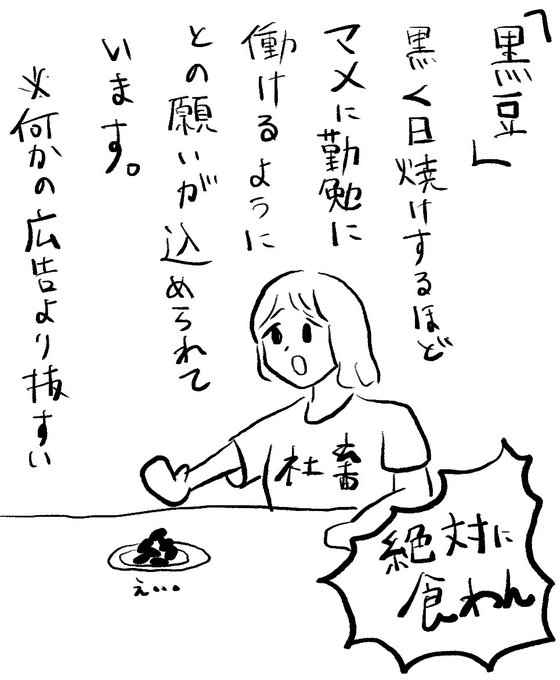 「黒豆」
黒く日焼けするほど
マメに勤勉に
働けるように
との願いが込められて
います。
※何かの広告より抜すい
社畜
絶対に
食わん
え...